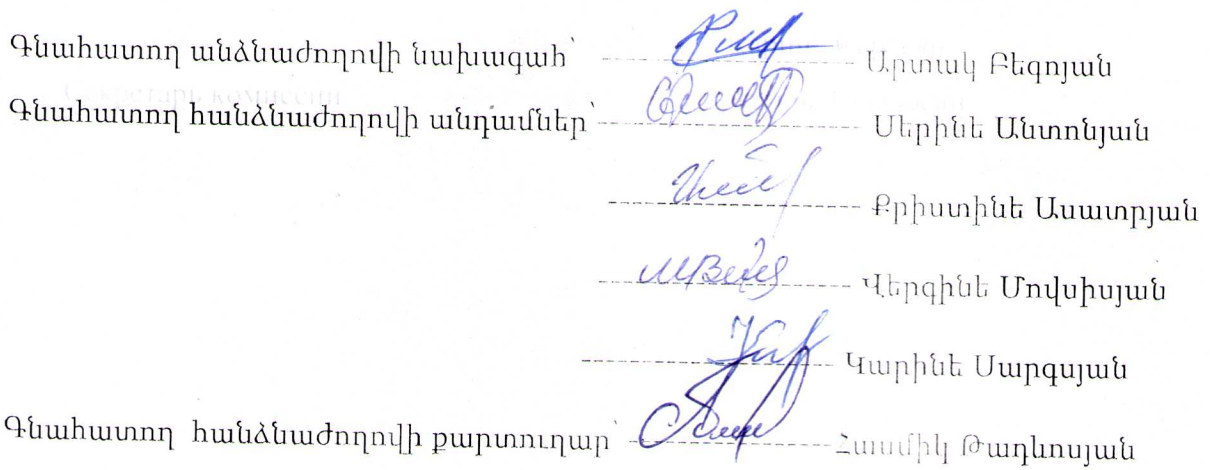 Գնահատող անձնաժողովի նախագահ՝ Արտակ Բեգոյան
Գնահատող հանձնաժողովի անդամներ՝ Մերինե Անտոնյան
Քրիստինե Ասատրյան
Վերգինե Մովսիսյան
Կարինե Սարգսյան
Գնահատող հանձնաժողովի քարտուղար՝ Հասմիկ Թադևոսյան